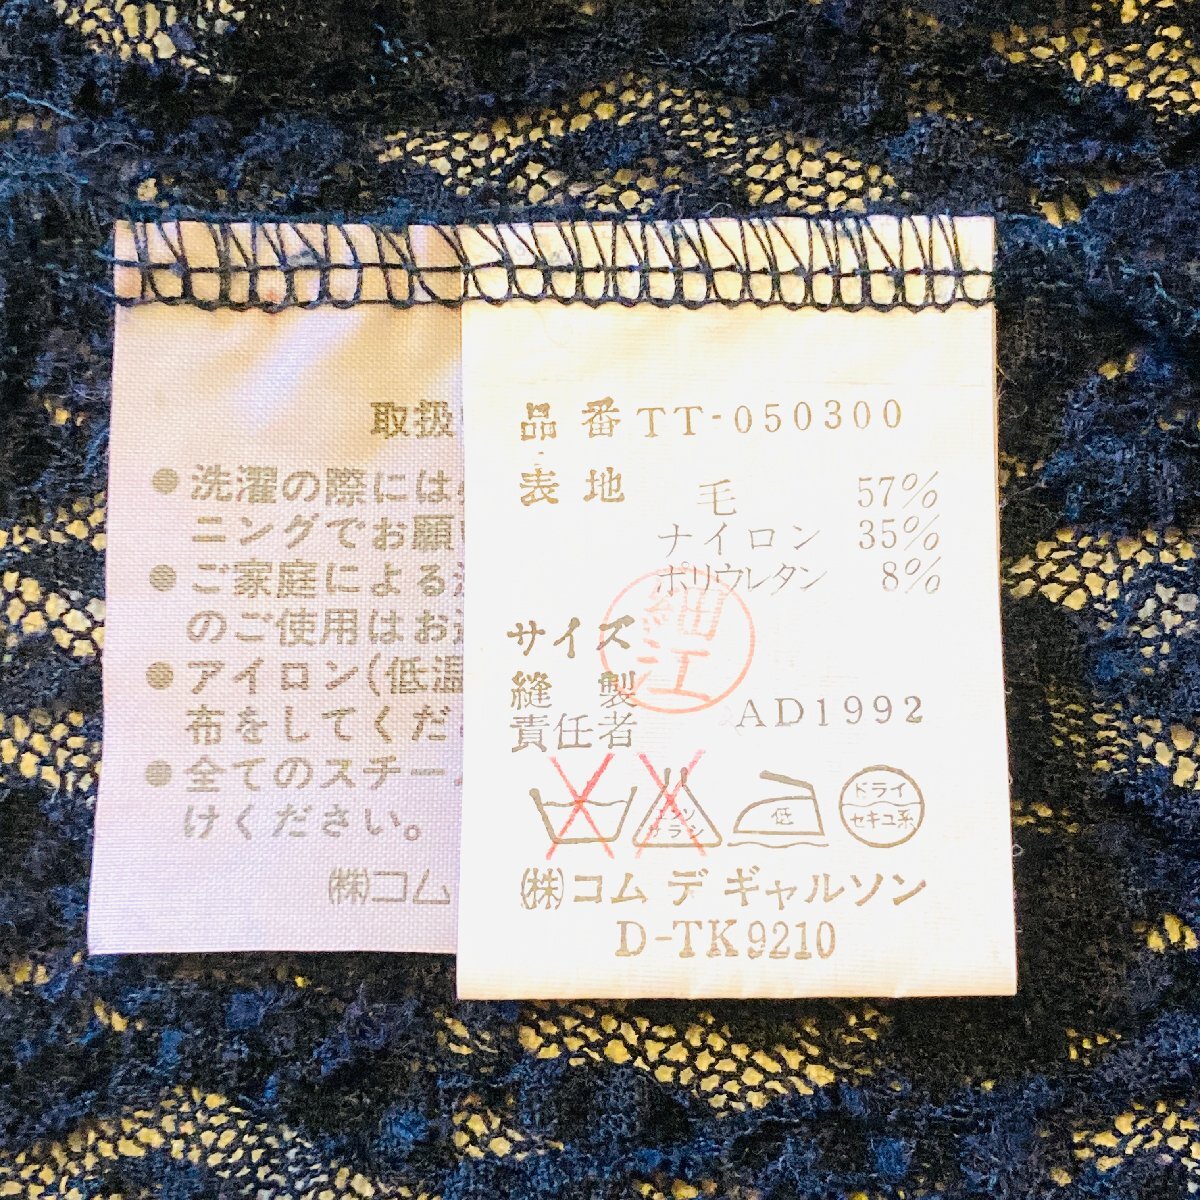 取扱
● 洗濯の際には
ニングでお願い
● ご家庭による
のご使用はお
● アイロン(低温
布をしてくだ
● 全てのスチー
けください。
㈱コム
品 番 TT-050300
表 地 毛 57%
ナイロン 35%
ポリウレタン 8%
細江
サイズ
縫 製
責任者 AD1992
エンソ
サラシ
低
ドライ
セキユ系
㈱コム デ ギャルソン
D-TK9210